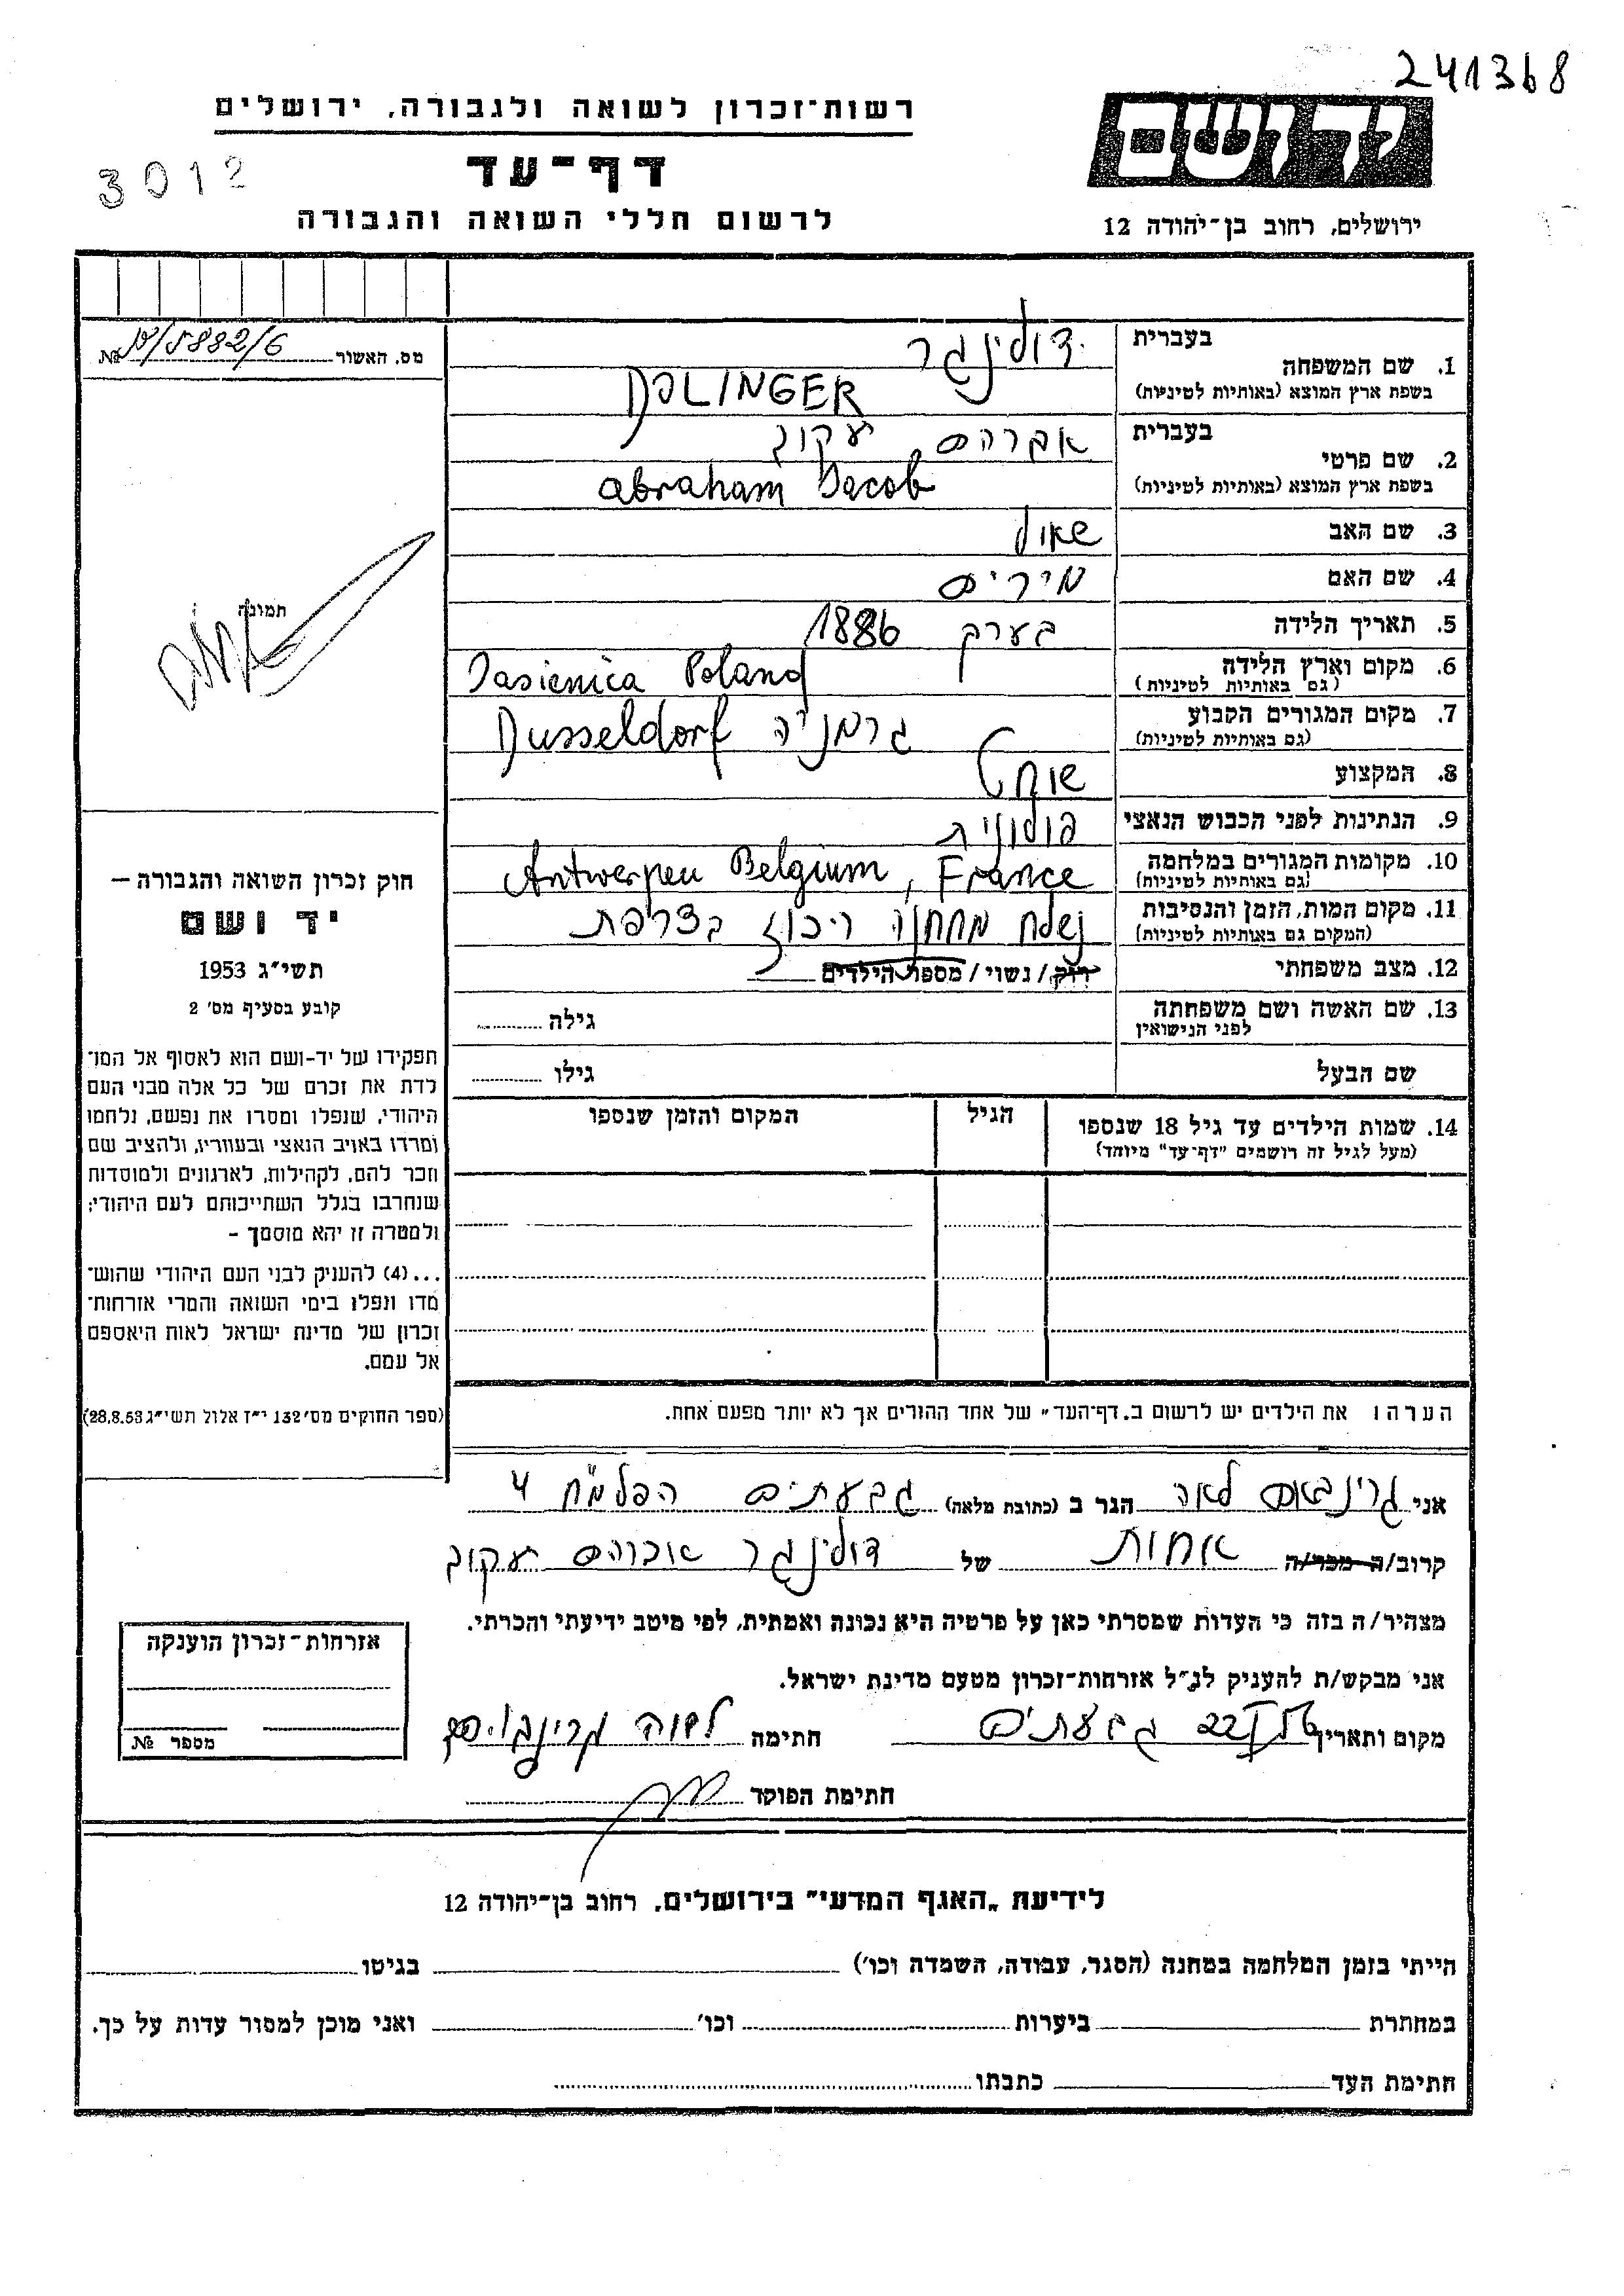 241368
רשות־זכרון לשואה ולגבורה, ירושלים
יד ושם
דף־עד
3012
לרשום חללי השואה והגבורה
ירושלים, רחוב בן־יהודה 12
מס. האשור 5882/6 №
בעברית דולינגר
1. שם המשפחה
בשפת ארץ המוצא (באותיות לטיניות) DOLINGER
בעברית אברהם יעקוב
2. שם פרטי
בשפת ארץ המוצא (באותיות לטיניות) Abraham Jacob
3. שם האב שאול
4. שם האם מירים
5. תאריך הלידה בערך 1886
6. מקום וארץ הלידה Jasienica Poland
(גם באותיות לטיניות)
7. מקום המגורים הקבוע גרמניה Dusseldorf
(גם באותיות לטיניות)
8. המקצוע שוחט
9. הנתינות לפני הכבוש הנאצי פולונית
10. מקומות המגורים במלחמה Antwerpen Belgium, France
(גם באותיות לטיניות)
11. מקום המות, הזמן והנסיבות נשלח ממחנה ריכוז בצרפת
(המקום גם באותיות לטיניות)
12. מצב משפחתי רווק / נשוי / מספר הילדים
13. שם האשה ושם משפחתה גילה
לפני הנישואין
שם הבעל גילו
14. שמות הילדים עד גיל 18 שנספו הגיל המקום והזמן שנספו
(מעל לגיל זה רושמים "דף־עד" מיוחד)
תמונה
חוק זכרון השואה והגבורה —
יד ושם
תשי״ג 1953
קובע בסעיף מס׳ 2
תפקידו של יד-ושם הוא לאסוף אל המו־
לדת את זכרם של כל אלה מבני העם
היהודי, שנפלו ומסרו את נפשם, נלחמו
ומרדו באויב הנאצי ובעוזריו, ולהציב שם
וזכר להם, לקהילות, לארגונים ולמוסדות
שנחרבו בגלל השתייכותם לעם היהודי;
ולמטרה זו יהא מוסמך -
...(4) להעניק לבני העם היהודי שהוש־
מדו ונפלו בימי השואה והמרי אזרחות־
זכרון של מדינת ישראל לאות היאספם
אל עמם.
(ספר החוקים מס׳ 132 י״ז אלול תשי״ג 28.8.53)
הערה: את הילדים יש לרשום ב„דף־העד״ של אחד ההורים אך לא יותר מפעם אחת.
אני גרינבאום לאה הגר ב (כתובת מלאה) גבעתים הפלמ״ח 4
קרוב/ה מכר/ה אחות של דולינגר אברהם יעקוב
מצהיר/ה בזה כי העדות שמסרתי כאן על פרטיה היא נכונה ואמתית, לפי מיטב ידיעתי והכרתי.
אני מבקש/ת להעניק לנ״ל אזרחות־זכרון מטעם מדינת ישראל.
מקום ותאריך גבעתים חתימה לאה גרינבוים
חתימת הפוקד
אזרחות־זכרון הוענקה
מספר №
לידיעת „האגף המדעי״ בירושלים, רחוב בן־יהודה 12
הייתי בזמן המלחמה במחנה (הסגר, עבודה, השמדה וכו׳) בגיטו
במחתרת ביערות וכו׳ ואני מוכן למסור עדות על כך.
חתימת העד כתבתו